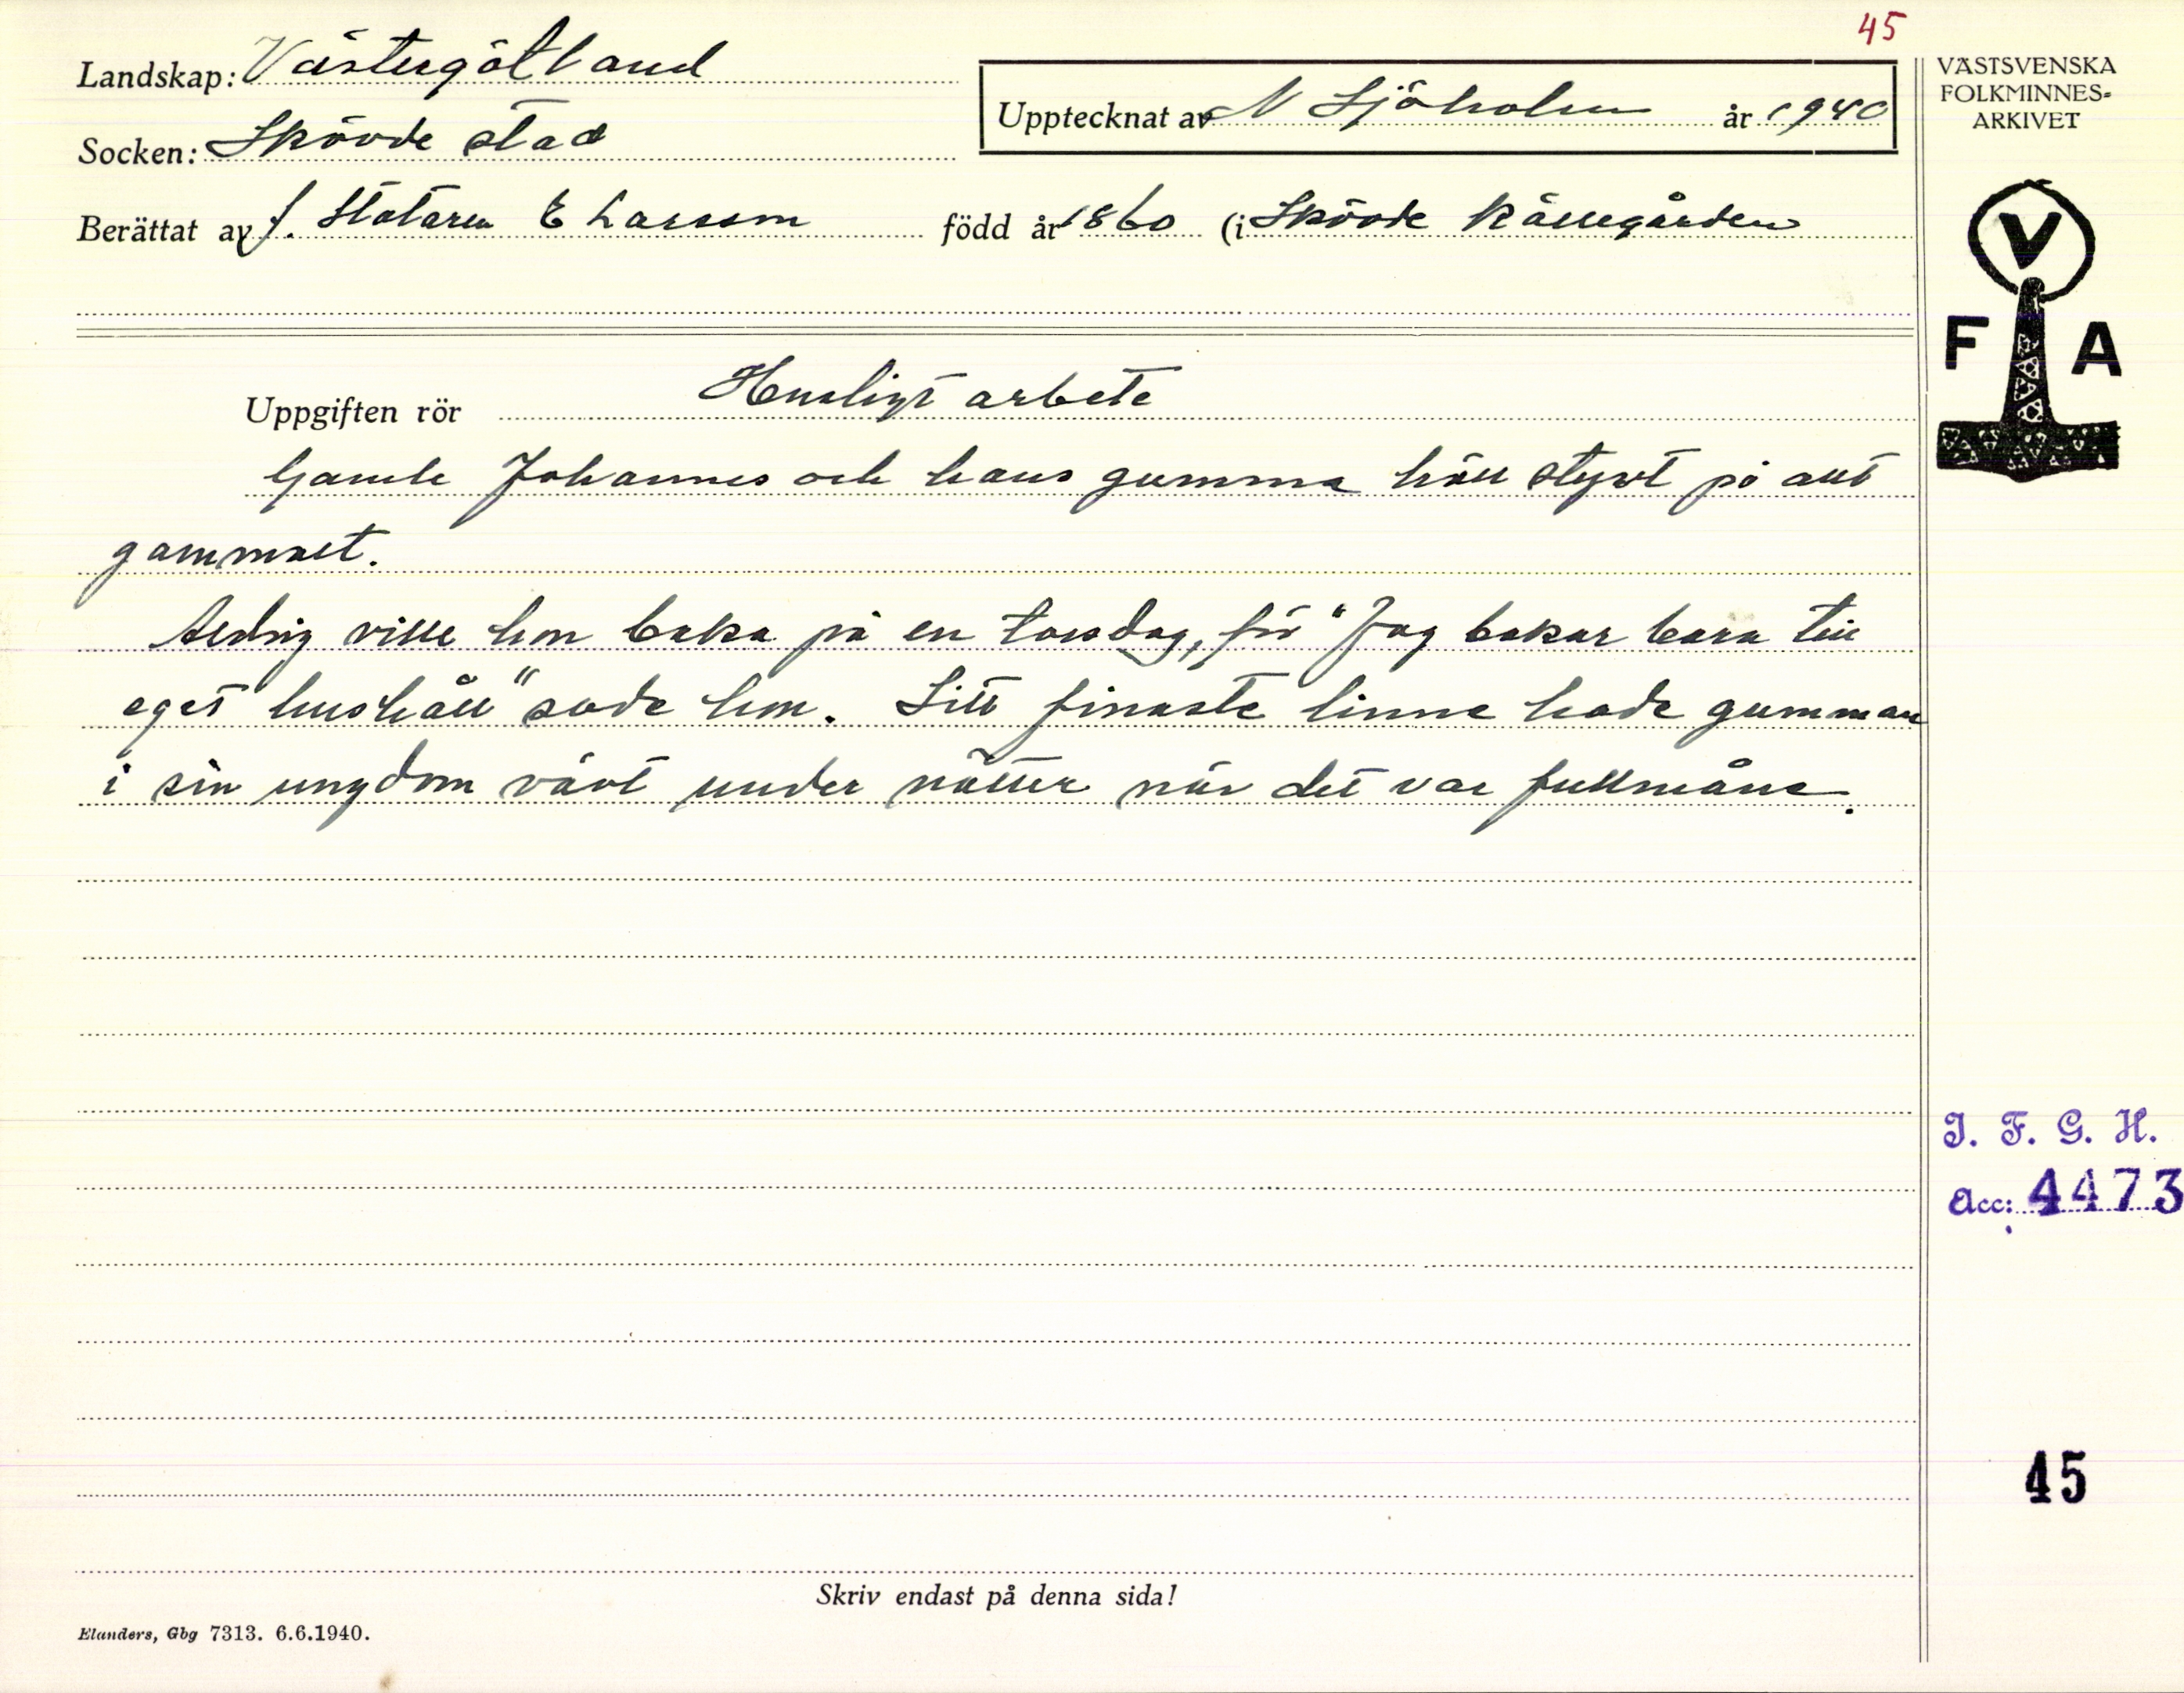 45
Landskap: Västergötland
Socken: Skövde stad
Upptecknat av N Sjöholm år 1940
Berättat av f. Stataren E Larsson född år 1860 (i Skövde Källegården
VÄSTSVENSKA
FOLKMINNES-
ARKIVET
V
F A
Uppgiften rör Husligt arbete
Gamle Johannes och hans gumma höll styvt på allt
gammalt.
Aldrig ville hon baka på en torsdag, för "Jag bakar bara till
eget hushåll" sade hon. Sitt finaste linne hade gumman
i sin ungdom vävt under nätter när det var fullmåne.
I. F. G. H.
Acc: 4473
45
Skriv endast på denna sida!
Elanders, Gbg 7313. 6.6.1940.